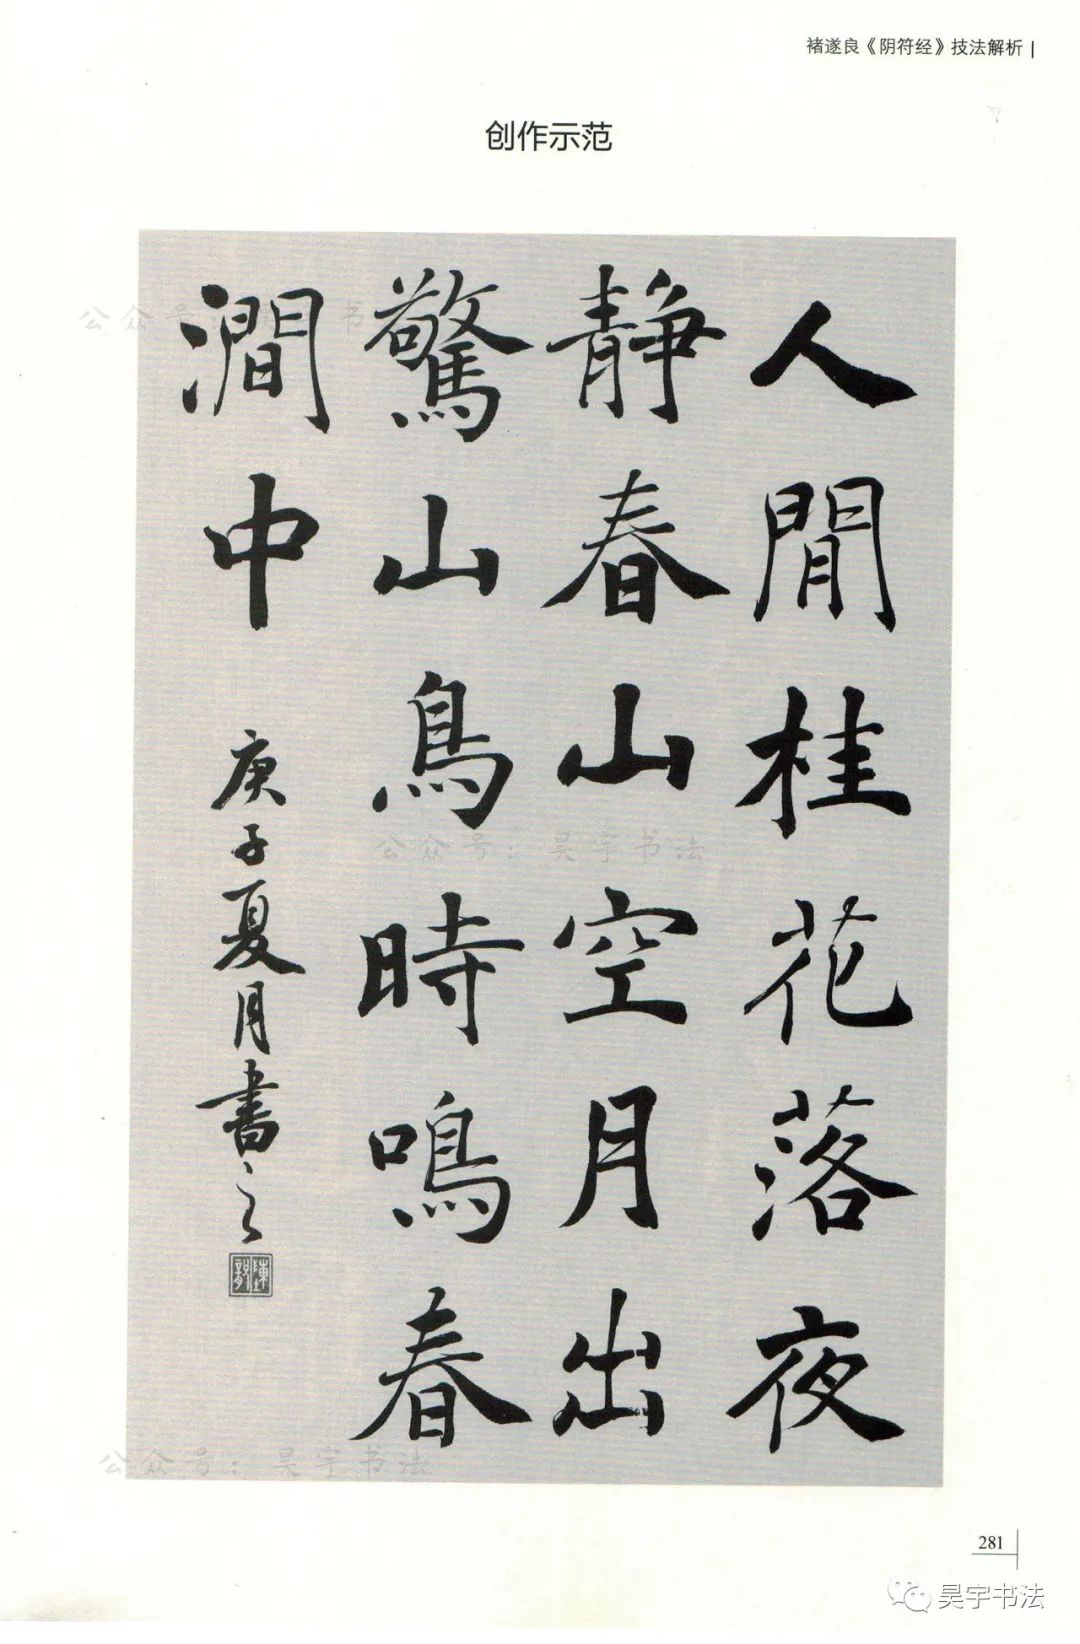 褚遂良《阴符经》技法解析
创作示范
人閒桂花落夜
静春山空月出
驚山鳥時鳴春
澗中
庚子夏月書之
公众号：昊宇书法
公众号：昊宇书法
281
昊宇书法